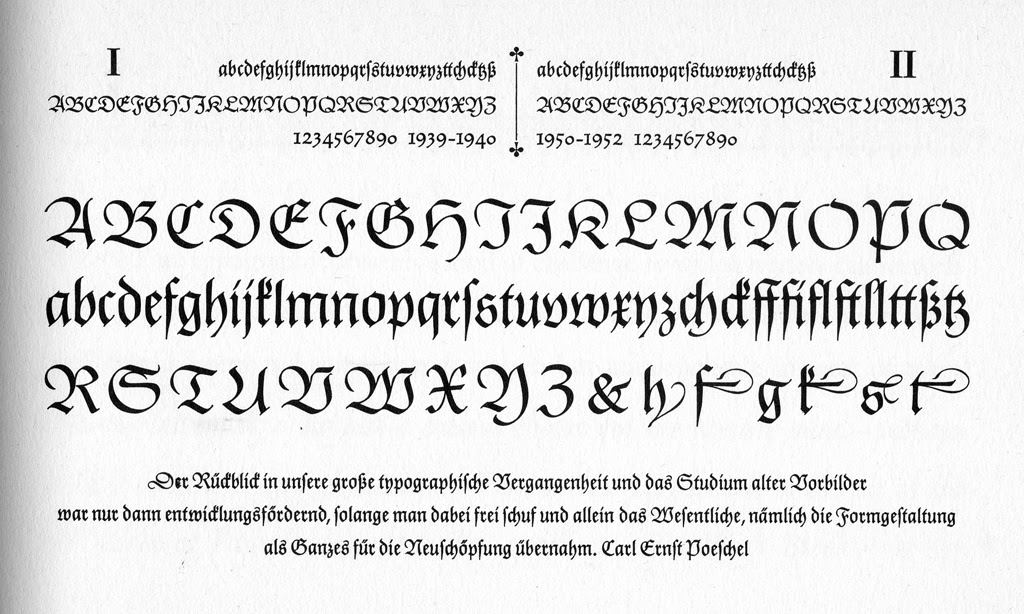 I
abcdefghijklmnopqrſstuvwxyzttchcktzß
ABCDEFGHIJKLMNOPQRSTUVWXYZ
1234567890 1939-1940
II
abcdefghijklmnopqrſstuvwxyzttchcktzß
ABCDEFGHIJKLMNOPQRSTUVWXYZ
1950-1952 1234567890
ABCDEFGHIJKLMNOPQ
abcdefghijklmnopqrſstuvwxyzchckfffiflftllttßtz
RSTUVWXYZ&hfgkst
Der Rückblick in unſere große typographiſche Vergangenheit und das Studium alter Vorbilder
war nur dann entwicklungsfördernd, ſolange man dabei frei ſchuf und allein das Weſentliche, nämlich die Formgeſtaltung
als Ganzes für die Neuſchöpfung übernahm. Carl Ernſt Poeſchel